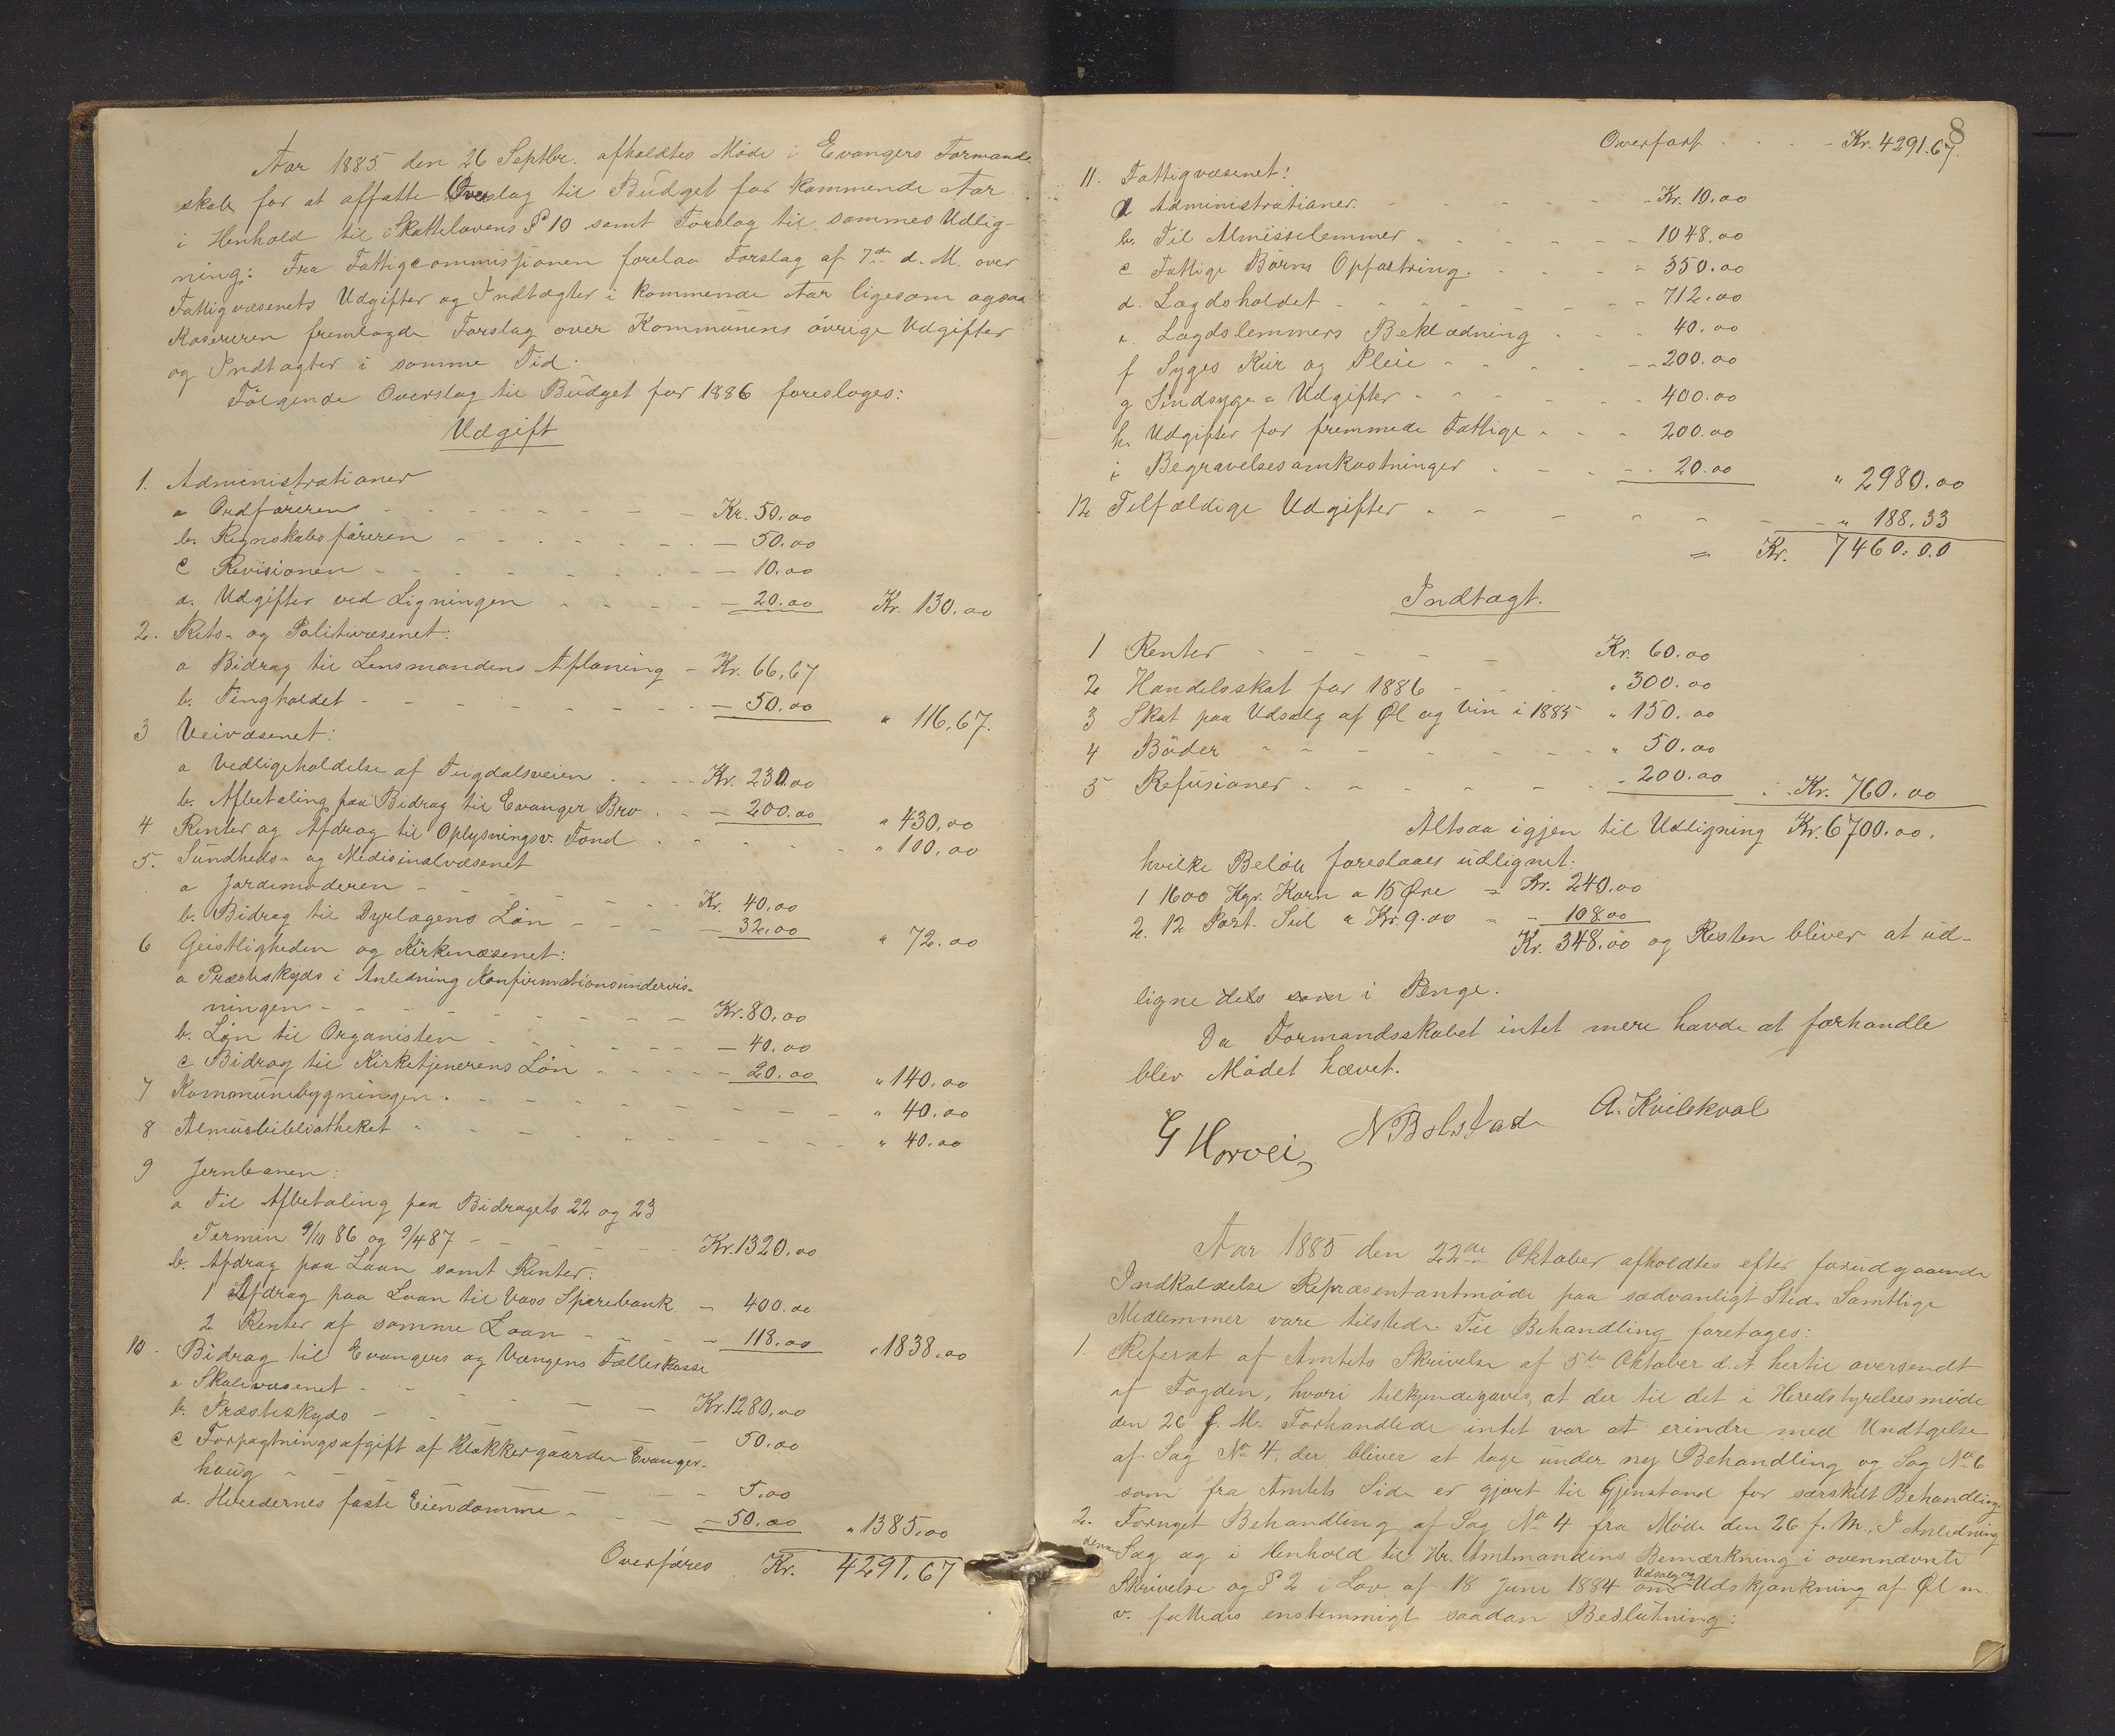 Aar 1885 den 26 Septbr. afholdtes Møde i Evangers Formand-
skab for at affatte Overslag til Budget for kommende Aar
i Henhold til Skattelovens § 10 samt Forslag til sammes Udlig-
ning: Fra Fattigcommissionen forelaa Forslag af 7de d. M. over
Fattigvæsenets Udgifter og Indtægter i kommende Aar ligesom ogsaa
Kasereren fremlagde Forslag over Kommunens övrige Udgifter
og Indtægter i samme Tid.
Fölgende Overslag til Budget for 1886 foresloges:
Udgift
1. Administrationer
a Ordföreren - - - Kr. 50.00
b. Regnskabsföreren - - - 50.00
c Revisionen - - - 10.00
d. Udgifter ved Ligningen - - - 20.00 Kr. 130.00
2. Rets- og Politivæsenet:
a Bidrag til Lensmandens Aflöning - Kr. 66,67
b. Tingholdet - - - 50.00 " 116,67.
3 Veivæsenet:
a Vedligeholdelse af Teigdalsveien - - - Kr. 230.00
b. Afbetaling paa Bidrag til Evanger Bro - - 200.00 " 430,00
4 Renter og Afdrag til Oplysningsv. Fond - - - " 100,00
5. Sundheds- og Medisinalvæsenet
a Jordemoderen - - - Kr. 40,00
b. Bidrag til Dyrlægens Lön - - - 32,00 " 72.00
6 Geistligheden og Kirkevæsenet:
a Præsteskyds i Anledning Konfirmationsundervis-
ningen - - - Kr. 80,00
b. Lön til Organisten - - - 40.00
c Bidrag til Kirketjenerens Lön - - - 20.00 " 140.00
7 Kommunebygningen - - - " 40.00
8 Almuebibliotheket - - - " 40.00
9 Jernbanen:
a Til Afbetaling paa Bidragets 22 og 23
Termin 9/10 86 og 9/4 87 - - - Kr. 1320,00
b. Afdrag paa Laan samt Renter:
1 Afdrag paa Laan til Voss Sparebank - 400.00
2 Renter af samme Laan - - - 118.00 " 1838.00
10. Bidrag til Evangers og Vangens Fælleskasse
a Skolevæsenet - - - Kr. 1280,00
b. Præsteskyds - - - 50.00
c Forpagtningsafgift af Klokkergaarden Evanger-
haug - - - 5,00
d. Herredernes faste Eiendomme - - - 50.00 " 1385,00
Overföres Kr. 4291,67
8
Overfört - - - Kr. 4291.67.
11. Fattigvæsenet:
a Administrationer. - - - Kr. 10.00
b. Til Almisselemmer - - - 1048.00
c Fattige Börns Opfostring. - - - 350.00
d. Lægdsholdet - - - 712.00
e. Lægdslemmers Beklædning - - - 40.00
f Syges Kur og Pleie - - - 200.00
g Sindsyge-Udgifter - - - 400.00
h. Udgifter for fremmede Fattige - - - 200.00
i Begravelsesomkostninger - - - 20.00 " 2980.00
12 Tilfældige Udgifter - - - " 188.33
= Kr. 7460.00
Indtægt.
1 Renter - - - Kr. 60.00
2 Handelsskat for 1886 - - - " 300.00
3 Skat paa Udsalg af Øl og Vin i 1885 " 150.00
4 Böder - - - " 50.00
5 Refusioner - - - 200.00 Kr. 760.00
Altsaa igjen til Udligning Kr. 6700.00.
hvilke Belöb foreslaaes udlignet:
1 1600 Kgr. Korn a 15 Øre = Kr. 240.00
2. 12 Sild a Kr. 9.00 = - 108.00
Kr. 348.00 og Resten bliver at ud-
ligne dels som i Penge.
Da Formandsskabet intet mere havde at forhandle
blev Mödet hævet.
G Horvei N Bolstad A. Kvilekval
Aar 1885 den 22de Oktober afholdtes efter forudgaaende
Indkaldelse Repræsentantmöde paa sædvanligt Sted. Samtlige
Medlemmer vare tilstede. Til Behandling foretoges:
1. Referat af Amtets Skrivelse af 5te Oktober d. A. hertil oversendt
af Fogden, hvori tilkjendegaves, at der til det i Heredstyrelsesmöde
den 26 f. M. Forhandlede intet var at erindre med Undtgelse
af Sag No 4, der bliver at tage under ny Behandling og Sag No 6
som fra Amtets Side er gjort til Gjenstand for særskilt Behandling.
2. Fornyet Behandling af Sag No 4 fra Möde den 26 f. M. I Anledning
denne Sag og i Henhold til Hr. Amtmandens Bemærkning i ovennævnte
Skrivelse og § 2 i Lov af 18 Juni 1884 om Udsalg og Udskjænkning af Øl m.
v. fattedes enstemmigt saadan Beslutning: